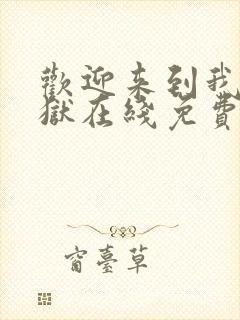 歡迎来到我
獄在綫免費
窗臺草